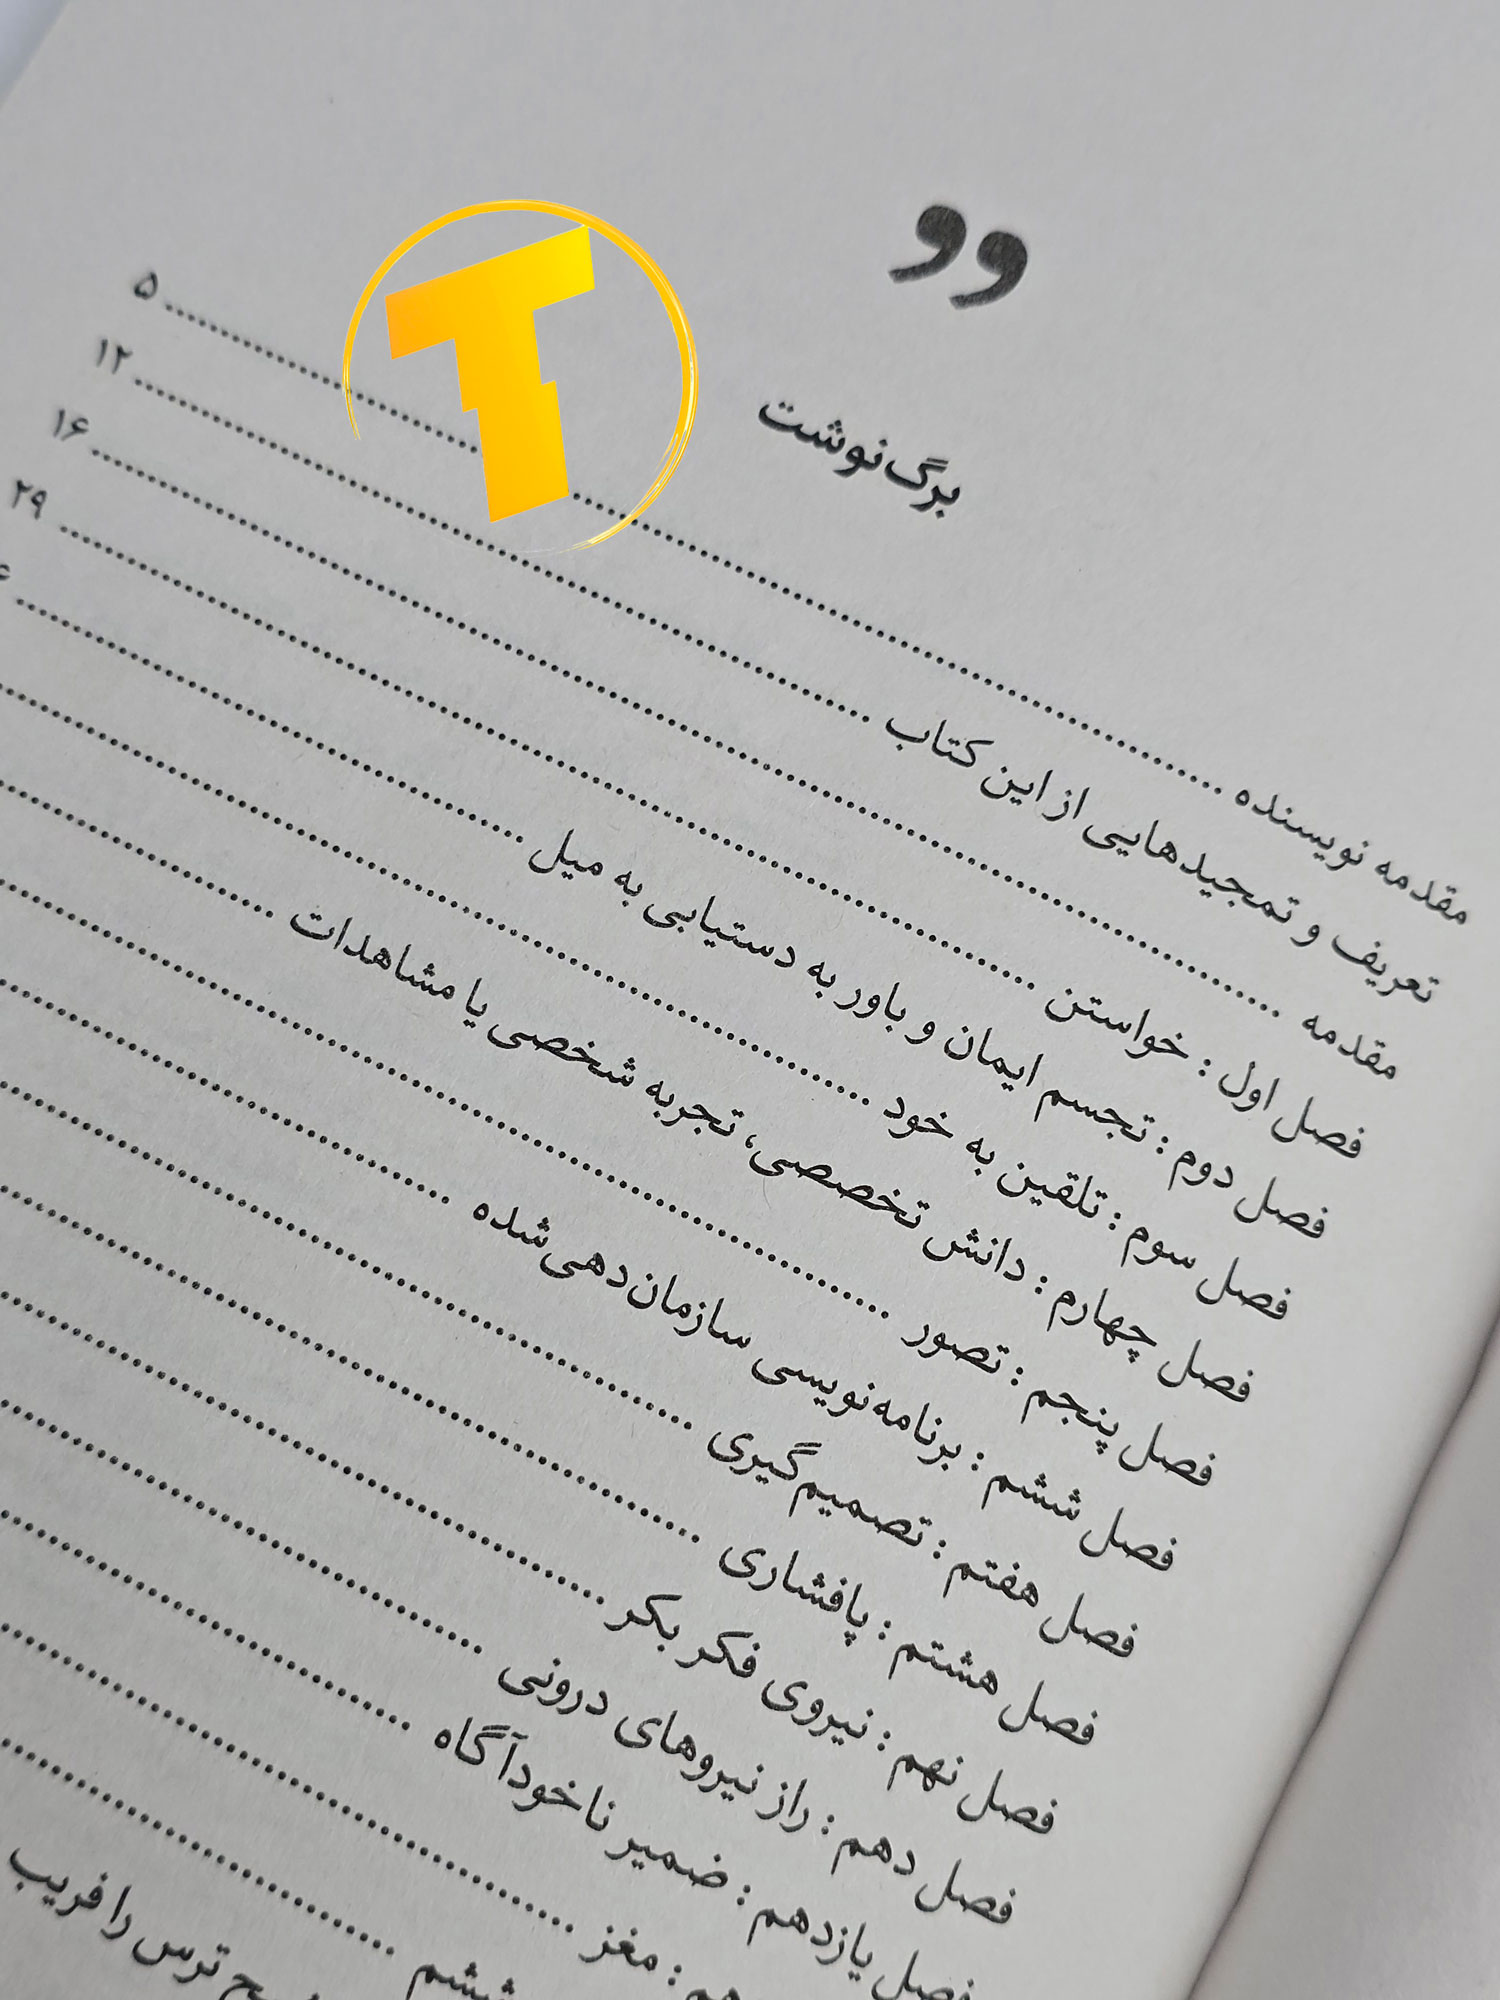 برگ‌نوشت
مقدمه نویسنده ........ ۵
تعریف و تمجیدهایی از این کتاب ........ ۱۲
مقدمه ........ ۱۶
فصل اول : خواستن ........ ۲۹
فصل دوم : تجسم ایمان و باور به دستیابی به میل ........
فصل سوم : تلقین به خود ........
فصل چهارم : دانش تخصصی، تجربه شخصی یا مشاهدات ........
فصل پنجم : تصور ........
فصل ششم : برنامه‌نویسی سازمان‌دهی‌شده ........
فصل هفتم : تصمیم‌گیری ........
فصل هشتم : پافشاری ........
فصل نهم : نیروی فکر بکر ........
فصل دهم : راز نیروهای درونی ........
فصل یازدهم : ضمیر ناخودآگاه ........
: مغز ........
ششم ........
ترس را فریب